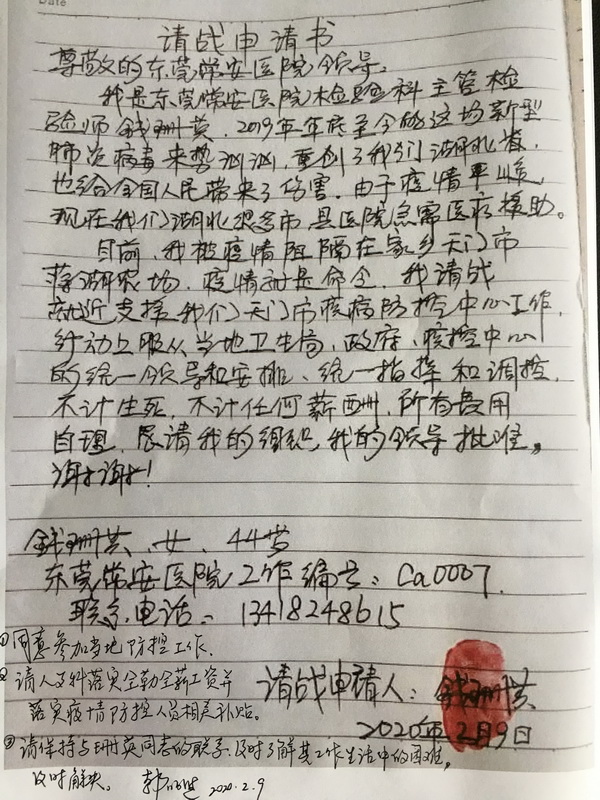 Date
请战申请书
尊敬的东莞常安医院领导:
我是东莞常安医院检验科主管检
验师钱珊英,2019年年底至今的这场新型
肺炎病毒来势汹汹,重创了我们湖北省,
也给全国人民带来了伤害。由于疫情严峻,
现在我们湖北很多市、县医院急需医疗援助。
目前,我被疫情阻隔在家乡天门市
蒋湖农场,疫情就是命令,我请战
就近支援我们天门市疾病防控中心工作,
行动上服从当地卫生局、政府、疾控中心
的统一领导和安排、统一指挥和调控,
不计生死,不计任何薪酬,所有费用
自理,恳请我的组织,我的领导批准,
谢谢!
钱珊英、女、44岁
东莞常安医院工作编号:Ca0007.
联系电话:13418248615
①同意参加当地防控工作.
②请人力科落实全勤全薪工资并
落实疫情防控人员相关补贴。
请战申请人:钱珊英
2020年2月9日
③请保持与珊英同志的联系,及时了解其工作生活中的困难,
及时解决。 2020.2.9